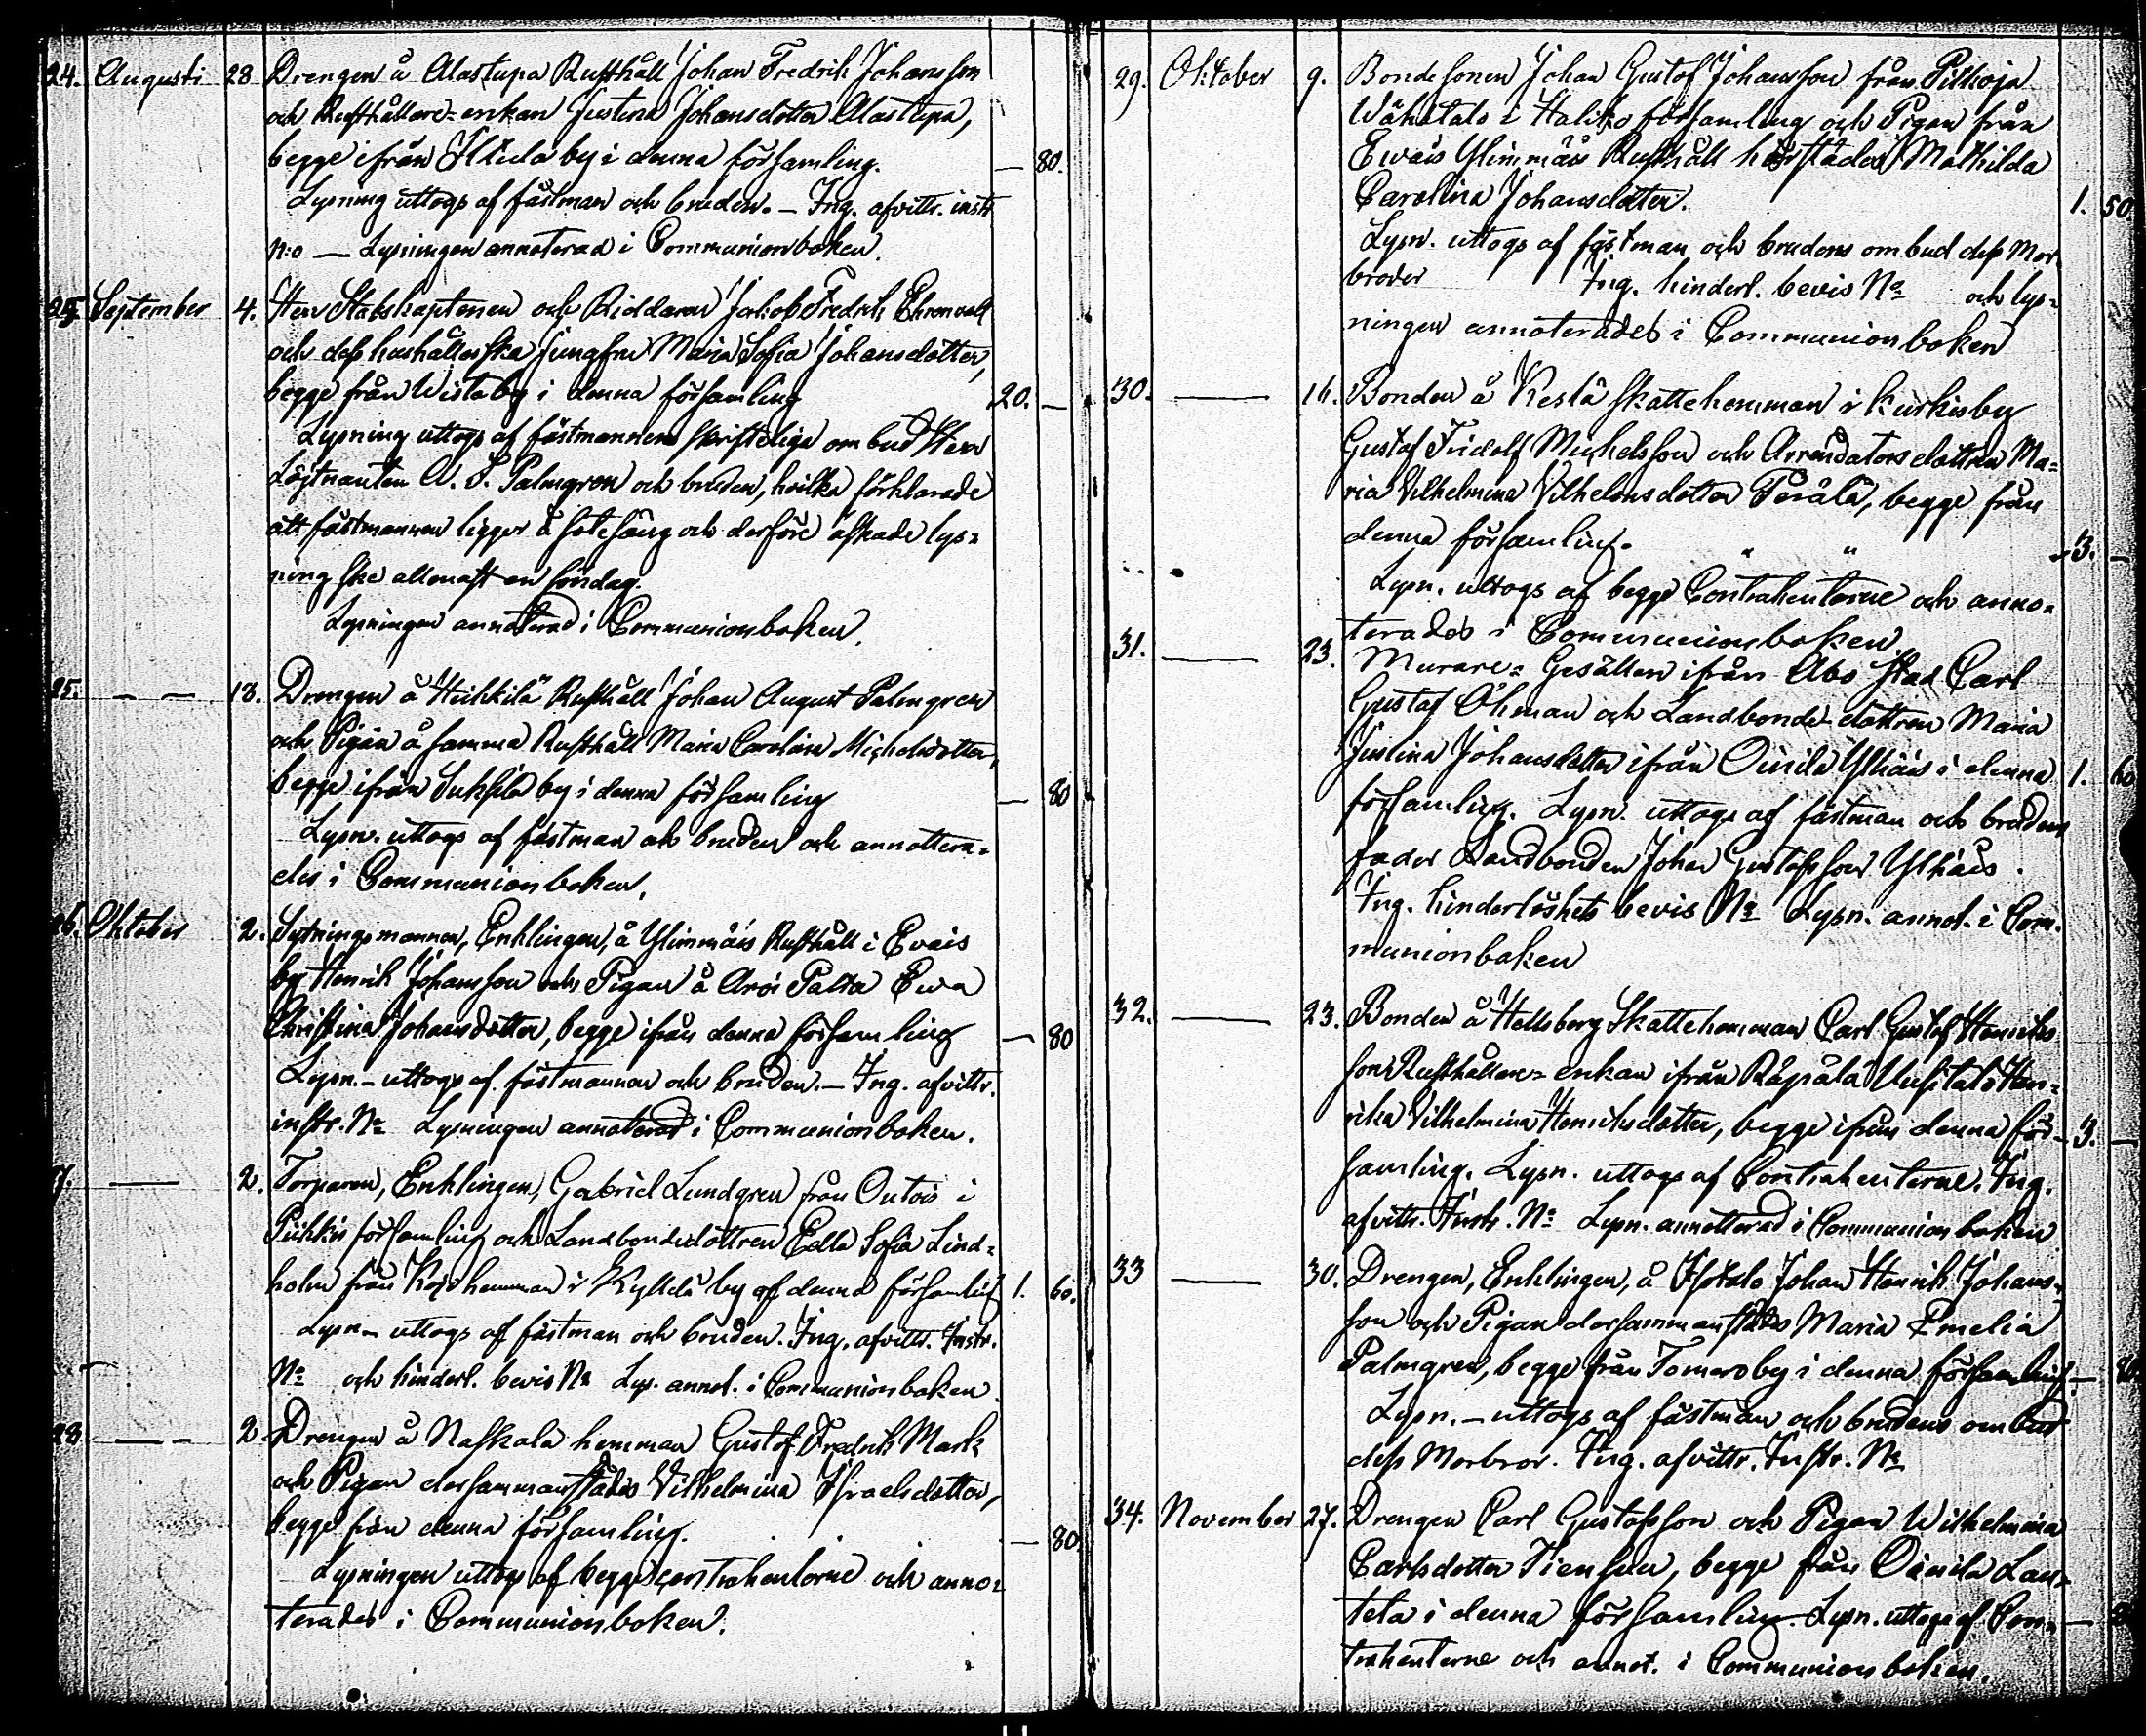 24. Augusti 28 Drengen å Alastupa Rusthåll Johan Fredrik Johansson
och Rusthållare-enkan Justina Johansdotter Alastupa,
begge ifrån by i denna församling. — 80.
Lysning uttogs af fästman och bruden. — Ing. afvittr. instr
n:o — Lysningen annoterad i Communionboken.
25. September 4. Herr Stabskaptenen och Riddaren Jakob Fredrik Ehrenvall
och dess hushållerska Jungfru Maria Sofia Johansdotter,
begge från Wista by i denna församling 20. —
Lysning uttogs af fästmannens skriftelige ombud Herr
Löjtnanten A. S. Palmgren och bruden, hvilka förklarade
att fästmannen ligger å sotesäng och derföre äskade lys=
ning ske allenast en söndag.
Lysningen annoterad i Communionboken.
25. — — 18. Drengen å Heikkilä Rusthåll Johan August Palmgren
och Pigan å samma Rusthåll Maria Carolina Michelsdotter,
begge ifrån by i denna församling — 80
Lysn. uttogs af fästman och bruden och annottera=
des i Communionboken.
26. Oktober 2. Sytningsmannen, Enklingen, å Ylimmäis Rusthåll i Evais
by Henrik Johansson och Pigan å Arois Palta Ewa
Christina Johansdotter, begge ifrån denna församling — 80
Lysn. — uttogs af fästmannen och bruden. — Ing. afvittr.
instr. No Lysningen annoterad i Communionboken.
27. — 2. Torparen, Enklingen, Gabriel Lundgren från Outois i
Piikkis församling och Landbondedottren Edla Sofia Lind=
holm från hemman i by af denna församling 1. 60.
Lysn — uttogs af fästman och bruden. Ing. afvittr. Instr.
No och hinderl. bevis No Lys. annot. i Communionboken.
28 — — 2 Drengen å Naskala hemman Gustof Fredrik Mark
och Pigan dersammanstädes Vilhelmina Israelsdotter,
begge från denna församling. — 80.
Lysningen uttogs af begge contrahenterne och anno=
terades i Communionboken.
29. Oktober 9. Bondesonen Johan Gustof Johansson från Pitkoja
Wähätalo i Haliko församling och Pigan från
Evais Ylimmäis Rusthåll härstädes Mathilda
Carolina Johansdotter. 1. 50
Lysn. uttogs af fästman och brudens ombud dess Mor
broder Ing. hinderl. bevis No och lys=
ningen annoterades i Communionboken
30. — 16. Bonden å Keslä skattehemman i Kurkisby
Gustaf Fridolf Michelsson och Arrendatorsdottren Ma=
ria Vilhelmina Vilhelmsdotter Perälä, begge från
denna församling. " " 3. —
Lysn. uttogs af begge Contrahenterne och anno=
terades i Communionboken.
31. — 23. Murare=Gesällen ifrån Åbo Stad Carl
Gustaf Öhman och Landbonde-dottren Maria
Justina Johansdotter ifrån Oinila Ylhäis i denna 1. 60
församling. Lysn. uttogs af fästman och brudens
fader Landbonden Johan Gustafsson Ylhäis.
Ing. hinderlöshets bevis No Lysn. annot. i Com.
munionboken
32. — 23. Bonden å Hellsberg Skattehemman Carl Gustaf Henriks
son Rusthållare=enkan ifrån Räpälä Uusitalo Hen=
rika Vilhelmina Henriksdotter, begge ifrån denna för= 3. —
samling. Lysn. uttogs af Contrahenterne. Ing.
afvittr. Instr. No Lysn. annotterad i Communionboken
33 — 30. Drengen, Enklingen, å Isotalo Johan Henrik Johans=
son och Pigan dersammanstädes Maria Emelia
Palmgren, begge från Tomero by i denna församling. — 80
Lysn. — uttogs af fästman och brudens ombud
dess Morbror. Ing. afvittr. Instr. No
34. November 27. Drengen Carl Gustafsson och Pigan Wilhelmina
Carlsdotter begge från Oinila Lau=
tela i denna församling. Lysn. uttogs af Con= —
trahenterne och annot. i Communionboken.